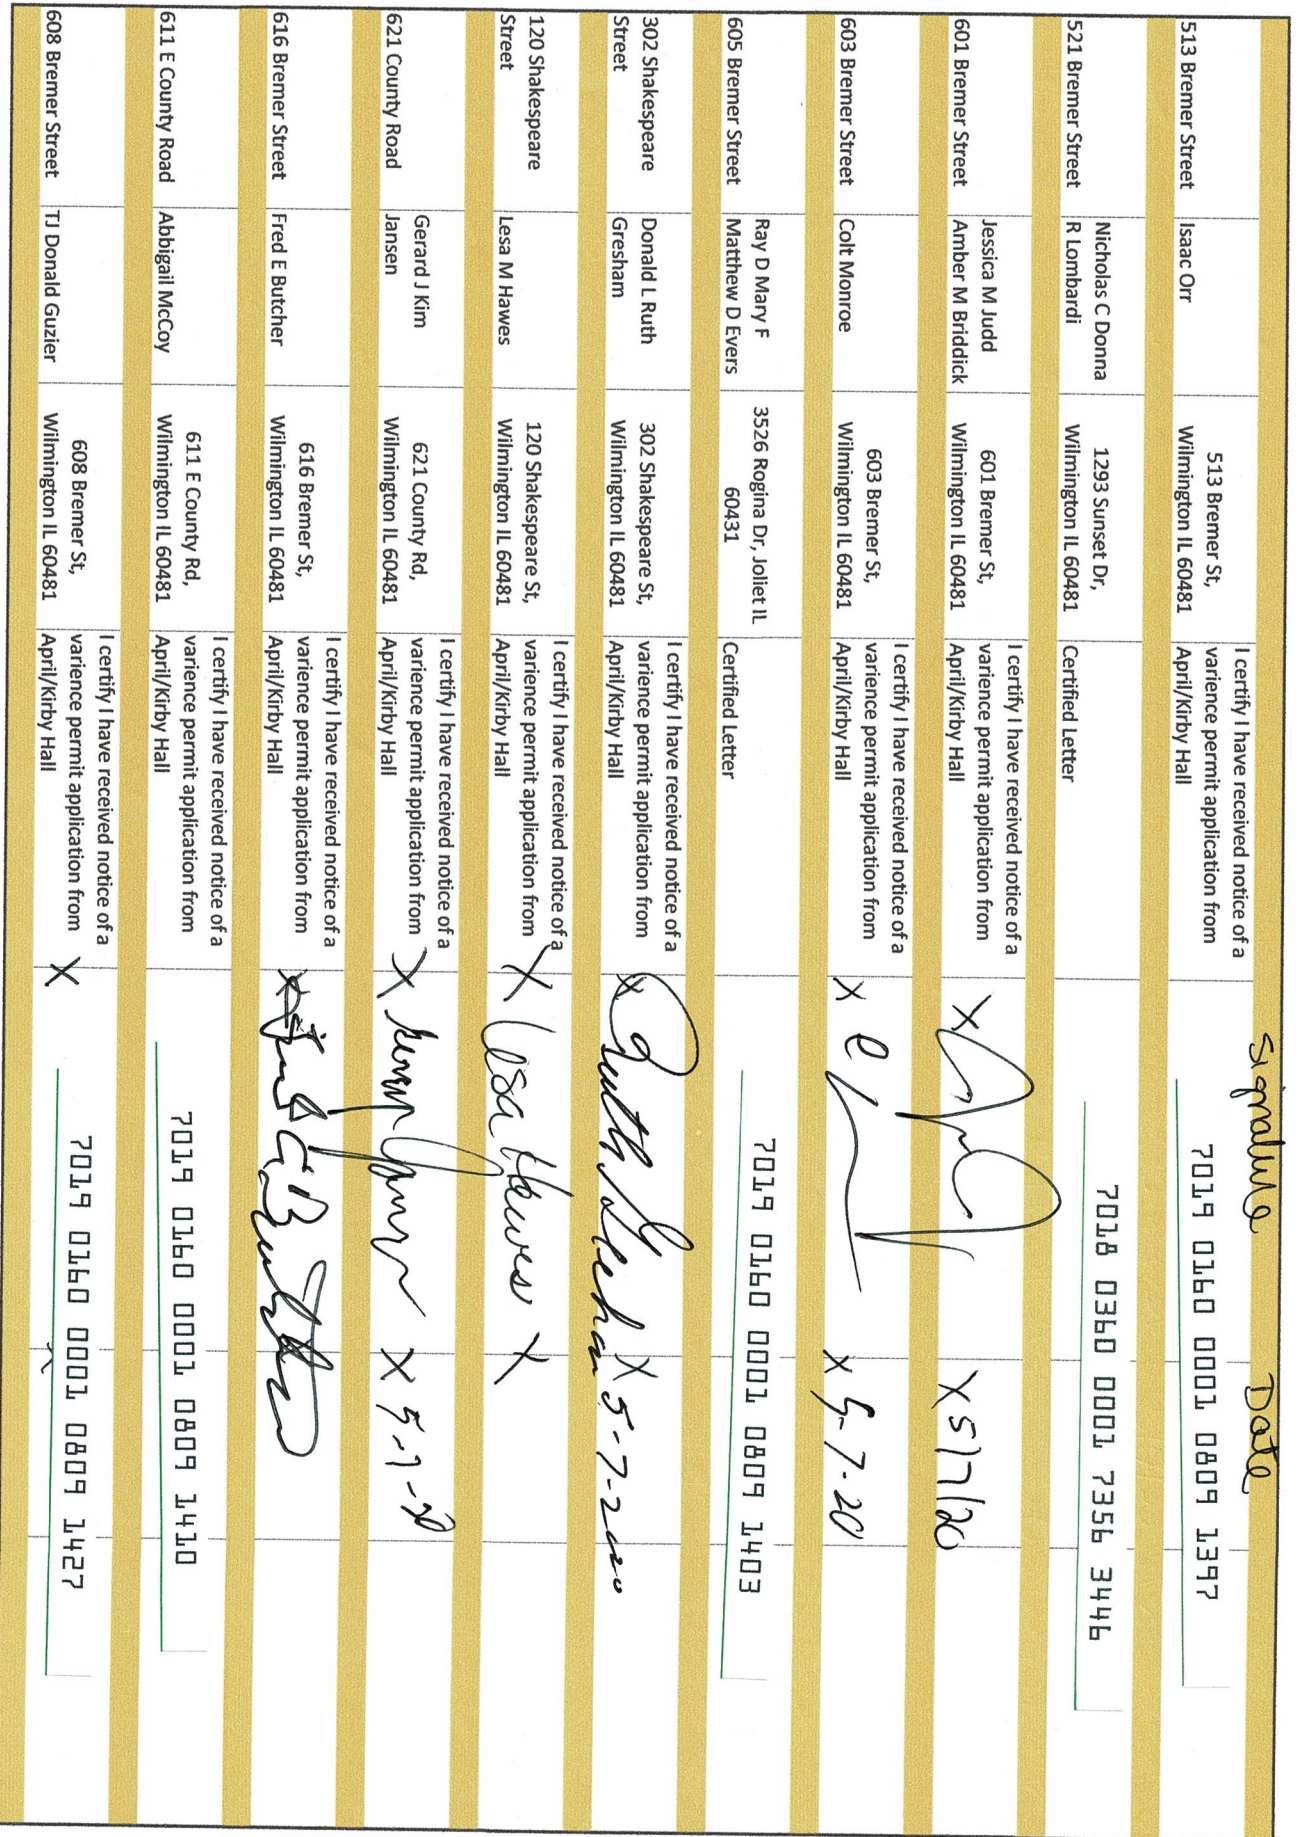 Signature Date
513 Bremer Street
Isaac Orr
513 Bremer St,
Wilmington IL 60481
I certify I have received notice of a
varience permit application from
April/Kirby Hall
7019 0160 0001 0809 1397
521 Bremer Street
Nicholas C Donna
R Lombardi
1293 Sunset Dr,
Wilmington IL 60481
Certified Letter
7018 0360 0001 7356 3446
601 Bremer Street
Jessica M Judd
Amber M Briddick
601 Bremer St,
Wilmington IL 60481
I certify I have received notice of a
varience permit application from
April/Kirby Hall
X
X 5/7/20
603 Bremer Street
Colt Monroe
603 Bremer St,
Wilmington IL 60481
I certify I have received notice of a
varience permit application from
April/Kirby Hall
X
X 5-7-20
605 Bremer Street
Ray D Mary F
Matthew D Evers
3526 Rogina Dr, Joliet IL
60431
Certified Letter
7019 0160 0001 0809 1403
302 Shakespeare
Street
Donald L Ruth
Gresham
302 Shakespeare St,
Wilmington IL 60481
I certify I have received notice of a
varience permit application from
April/Kirby Hall
X Ruth
X 5-7-2020
120 Shakespeare
Street
Lesa M Hawes
120 Shakespeare St,
Wilmington IL 60481
I certify I have received notice of a
varience permit application from
April/Kirby Hall
X Lesa Hawes X
621 County Road
Gerard J Kim
Jansen
621 County Rd,
Wilmington IL 60481
I certify I have received notice of a
varience permit application from
April/Kirby Hall
X
X 5-7-20
616 Bremer Street
Fred E Butcher
616 Bremer St,
Wilmington IL 60481
I certify I have received notice of a
varience permit application from
April/Kirby Hall
X
611 E County Road
Abbigail McCoy
611 E County Rd,
Wilmington IL 60481
I certify I have received notice of a
varience permit application from
April/Kirby Hall
7019 0160 0001 0809 1410
608 Bremer Street
TJ Donald Guzier
608 Bremer St,
Wilmington IL 60481
I certify I have received notice of a
varience permit application from
April/Kirby Hall
X
7019 0160 0001 0809 1427
X